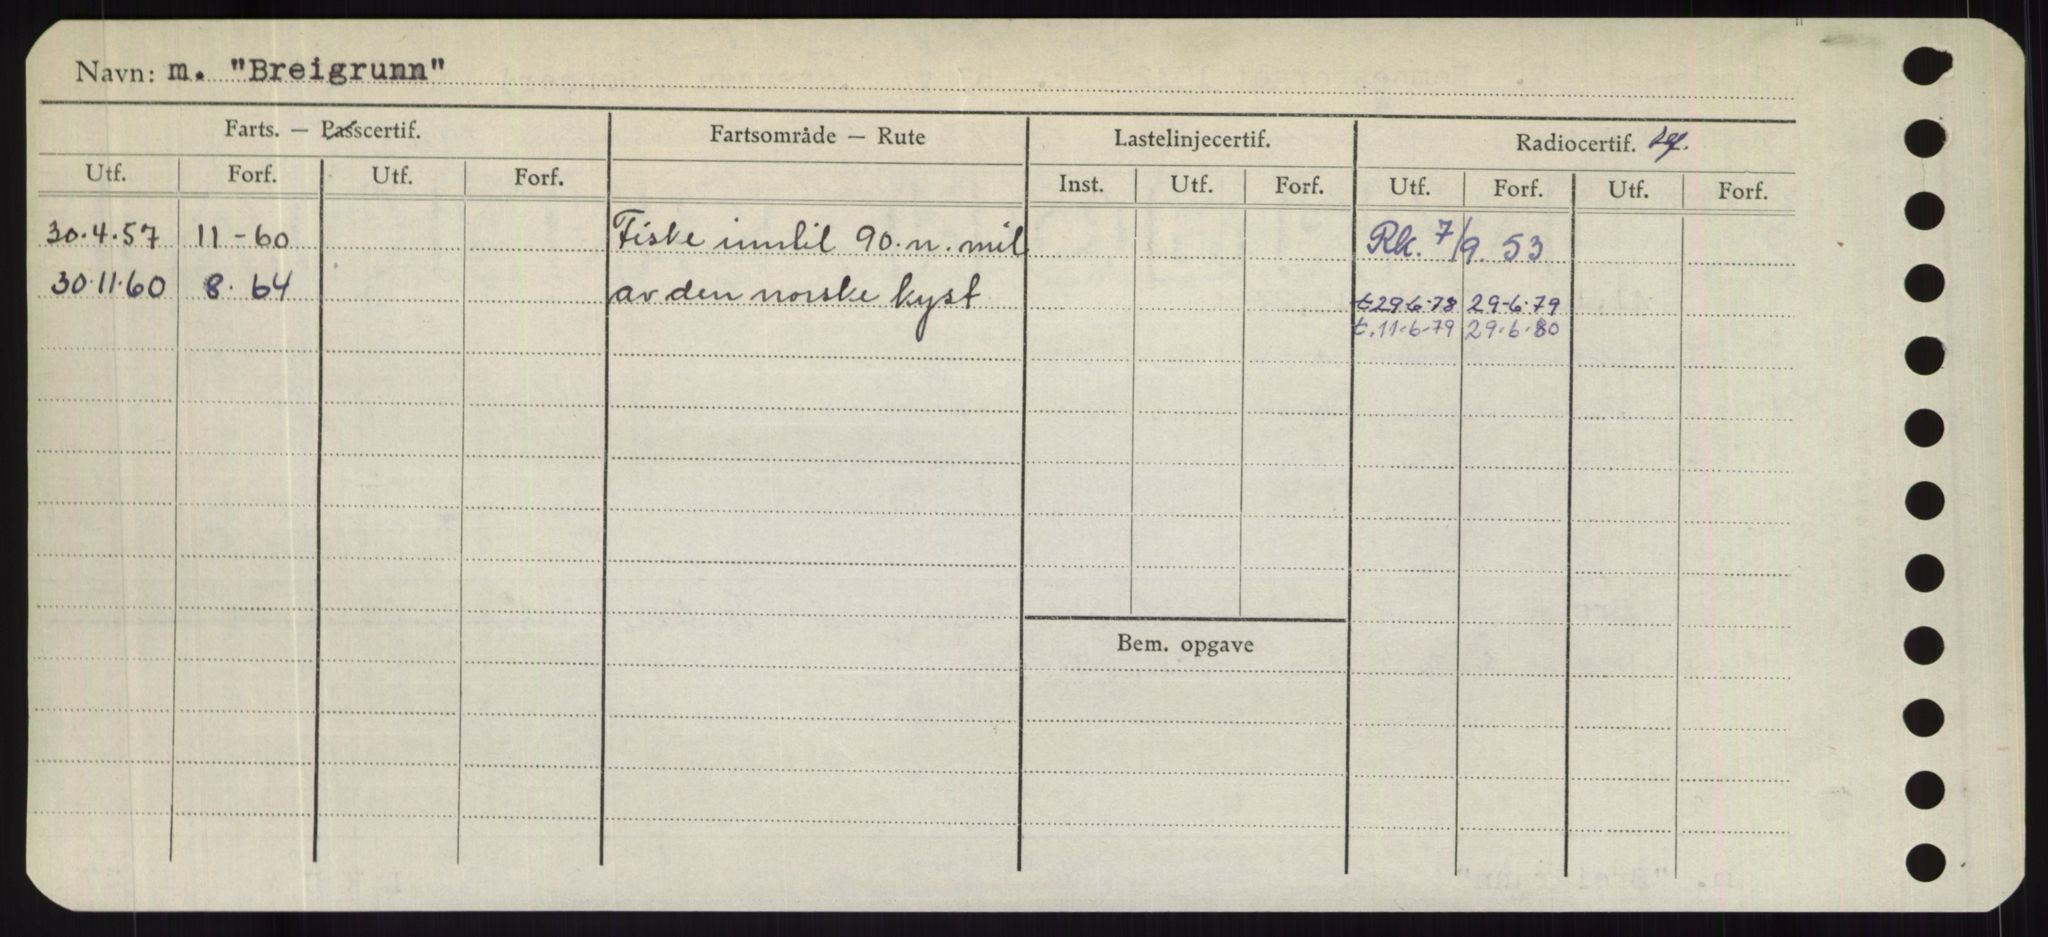 Navn: m. "Breigrunn"
Farts. — Passcertif. Fartsområde — Rute Lastelinjecertif. Radiocertif.
Utf. Forf. Utf. Forf. Inst. Utf. Forf. Utf. Forf. Utf. Forf.
30.4.57 11-60 Fiske inntil 90.n.mil Rk. 7/9. 53
30.11.60 8.64 av den norske kyst
t.29.6.78 29-6.79
t.11.6.79 29.6.80
Bem. opgave